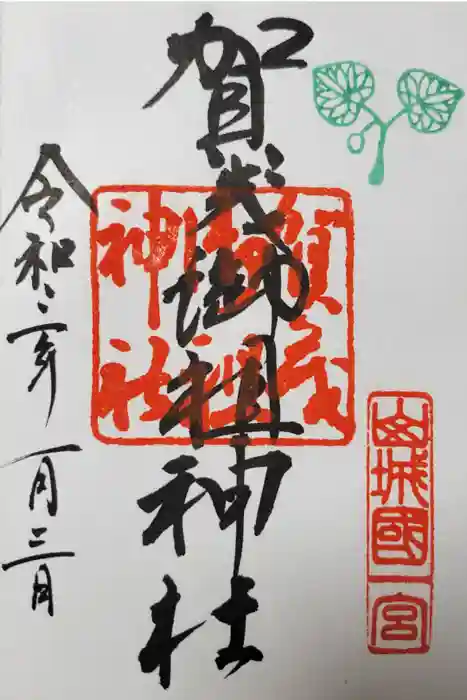 山城國一宮
賀茂御祖神社
賀茂御祖神社
令和二年一月三日